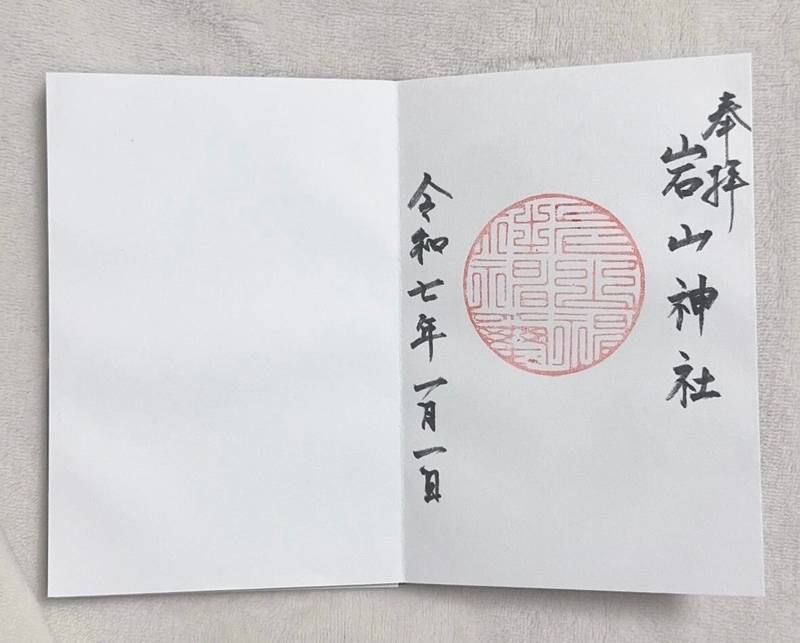 奉拝
岩山神社
令和七年一月一日